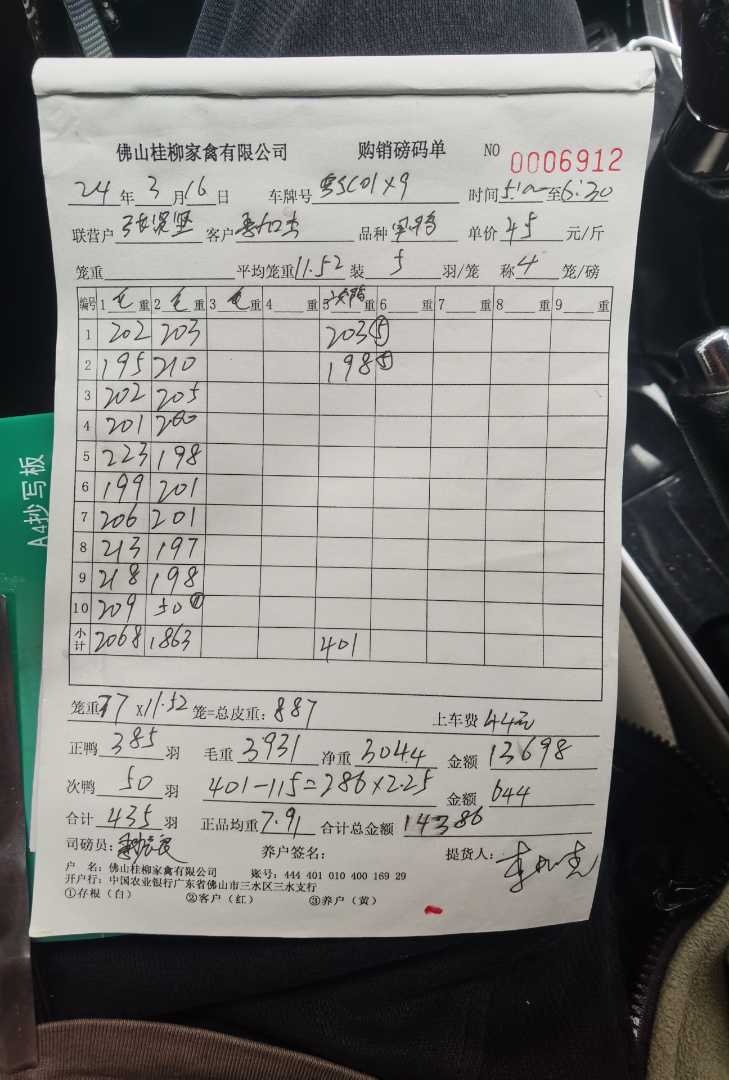 佛山桂柳家禽有限公司 购销磅码单 NO 0006912
24 年 3 月 16 日 车牌号 时间 5:00 至 6:30
联营户 客户 品种 单价 4.5 元/斤
笼重 平均笼重 11.52 装 5 羽/笼 称 4 笼/磅
编号 1 毛 重 2 毛 重 3 毛 重 4 重 5 次鸭 6 重 7 重 8 重 9 重
1 202 203 203⑤
2 195 210 198⑤
3 202 205
4 201 200
5 223 198
6 199 201
7 206 201
8 213 197
9 218 198
10 209 50①
小计 2068 1863 401
笼重 77 X11.52 笼=总皮重: 887 上车费 44元
正鸭 385 羽 毛重 3931 净重 3044 金额 13698
次鸭 50 羽 401-115=286×2.25 金额 644
合计 435 羽 正品均重 7.91 合计总金额 14386
司磅员: 养户签名: 提货人:
户 名: 佛山桂柳家禽有限公司 账号: 444 401 010 400 169 29
开户行: 中国农业银行广东省佛山市三水区三水支行
①存根（白） ②客户（红） ③养户（黄）
A4抄写板